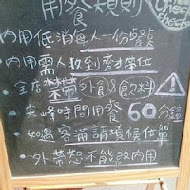 用餐規則
內用低消每人一份套餐
內用需人數到齊才帶位
全店禁帶外食&飲料
尖峰時間用餐60分鐘
如遇客滿請填候位單
外帶恕不能改內用